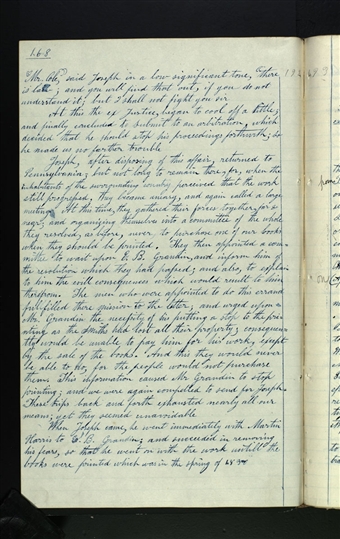 168
"Mr. Cole," said Joseph in a low significant tone, "there
is law; and you will find that out, if you do not
understand it; but I shall not fight you sir
At this the ex Justice, began to cool off a little;
and finally concluded to submit to an arbitration, which
decided that he should stop his proceedings forthwith; so
he made us no further trouble
Joseph, after disposing of this affair, returned to
Pennsylvania; but not long to remain there, for, when the
inhabitants of the surrounding country perceived that the work
still progressed, they became uneasy, and again called a large
meeting. At this time, they gathered their forces together, far &
nigh; and organizing themselves into a committee of the whole
they resolved, as before, never to purchase one of our books
when they should be printed. They then appointed a com-
mittee to wait upon E. B. Grandin, and inform him of
the resolution which they had passed; and also, to explain
to him the evil consequences which would result to him
therefrom. The men who were appointed to do this errand
fulfilled their mission to the letter; and urged upon
Mr. Grandin the necessity of his putting a stop to the prin-
ting as the Smiths had lost all their property; consequen
tly would be unable to pay him for his work, except
by the sale of the books. And this they would never
be able to do, for the people would not purchase
them. This information caused Mr. Grandin to stop
printing; and we were again compelled to send for Joseph.
These trips back and forth exhausted nearly all our
means; yet they seemed unavoidable
When Joseph came, he went immediately with Martin
Harris to E. B. Grandin; and succeeded in removing
his fears, so that he went on with the work untill the
books were printed which was in the spring of 1830